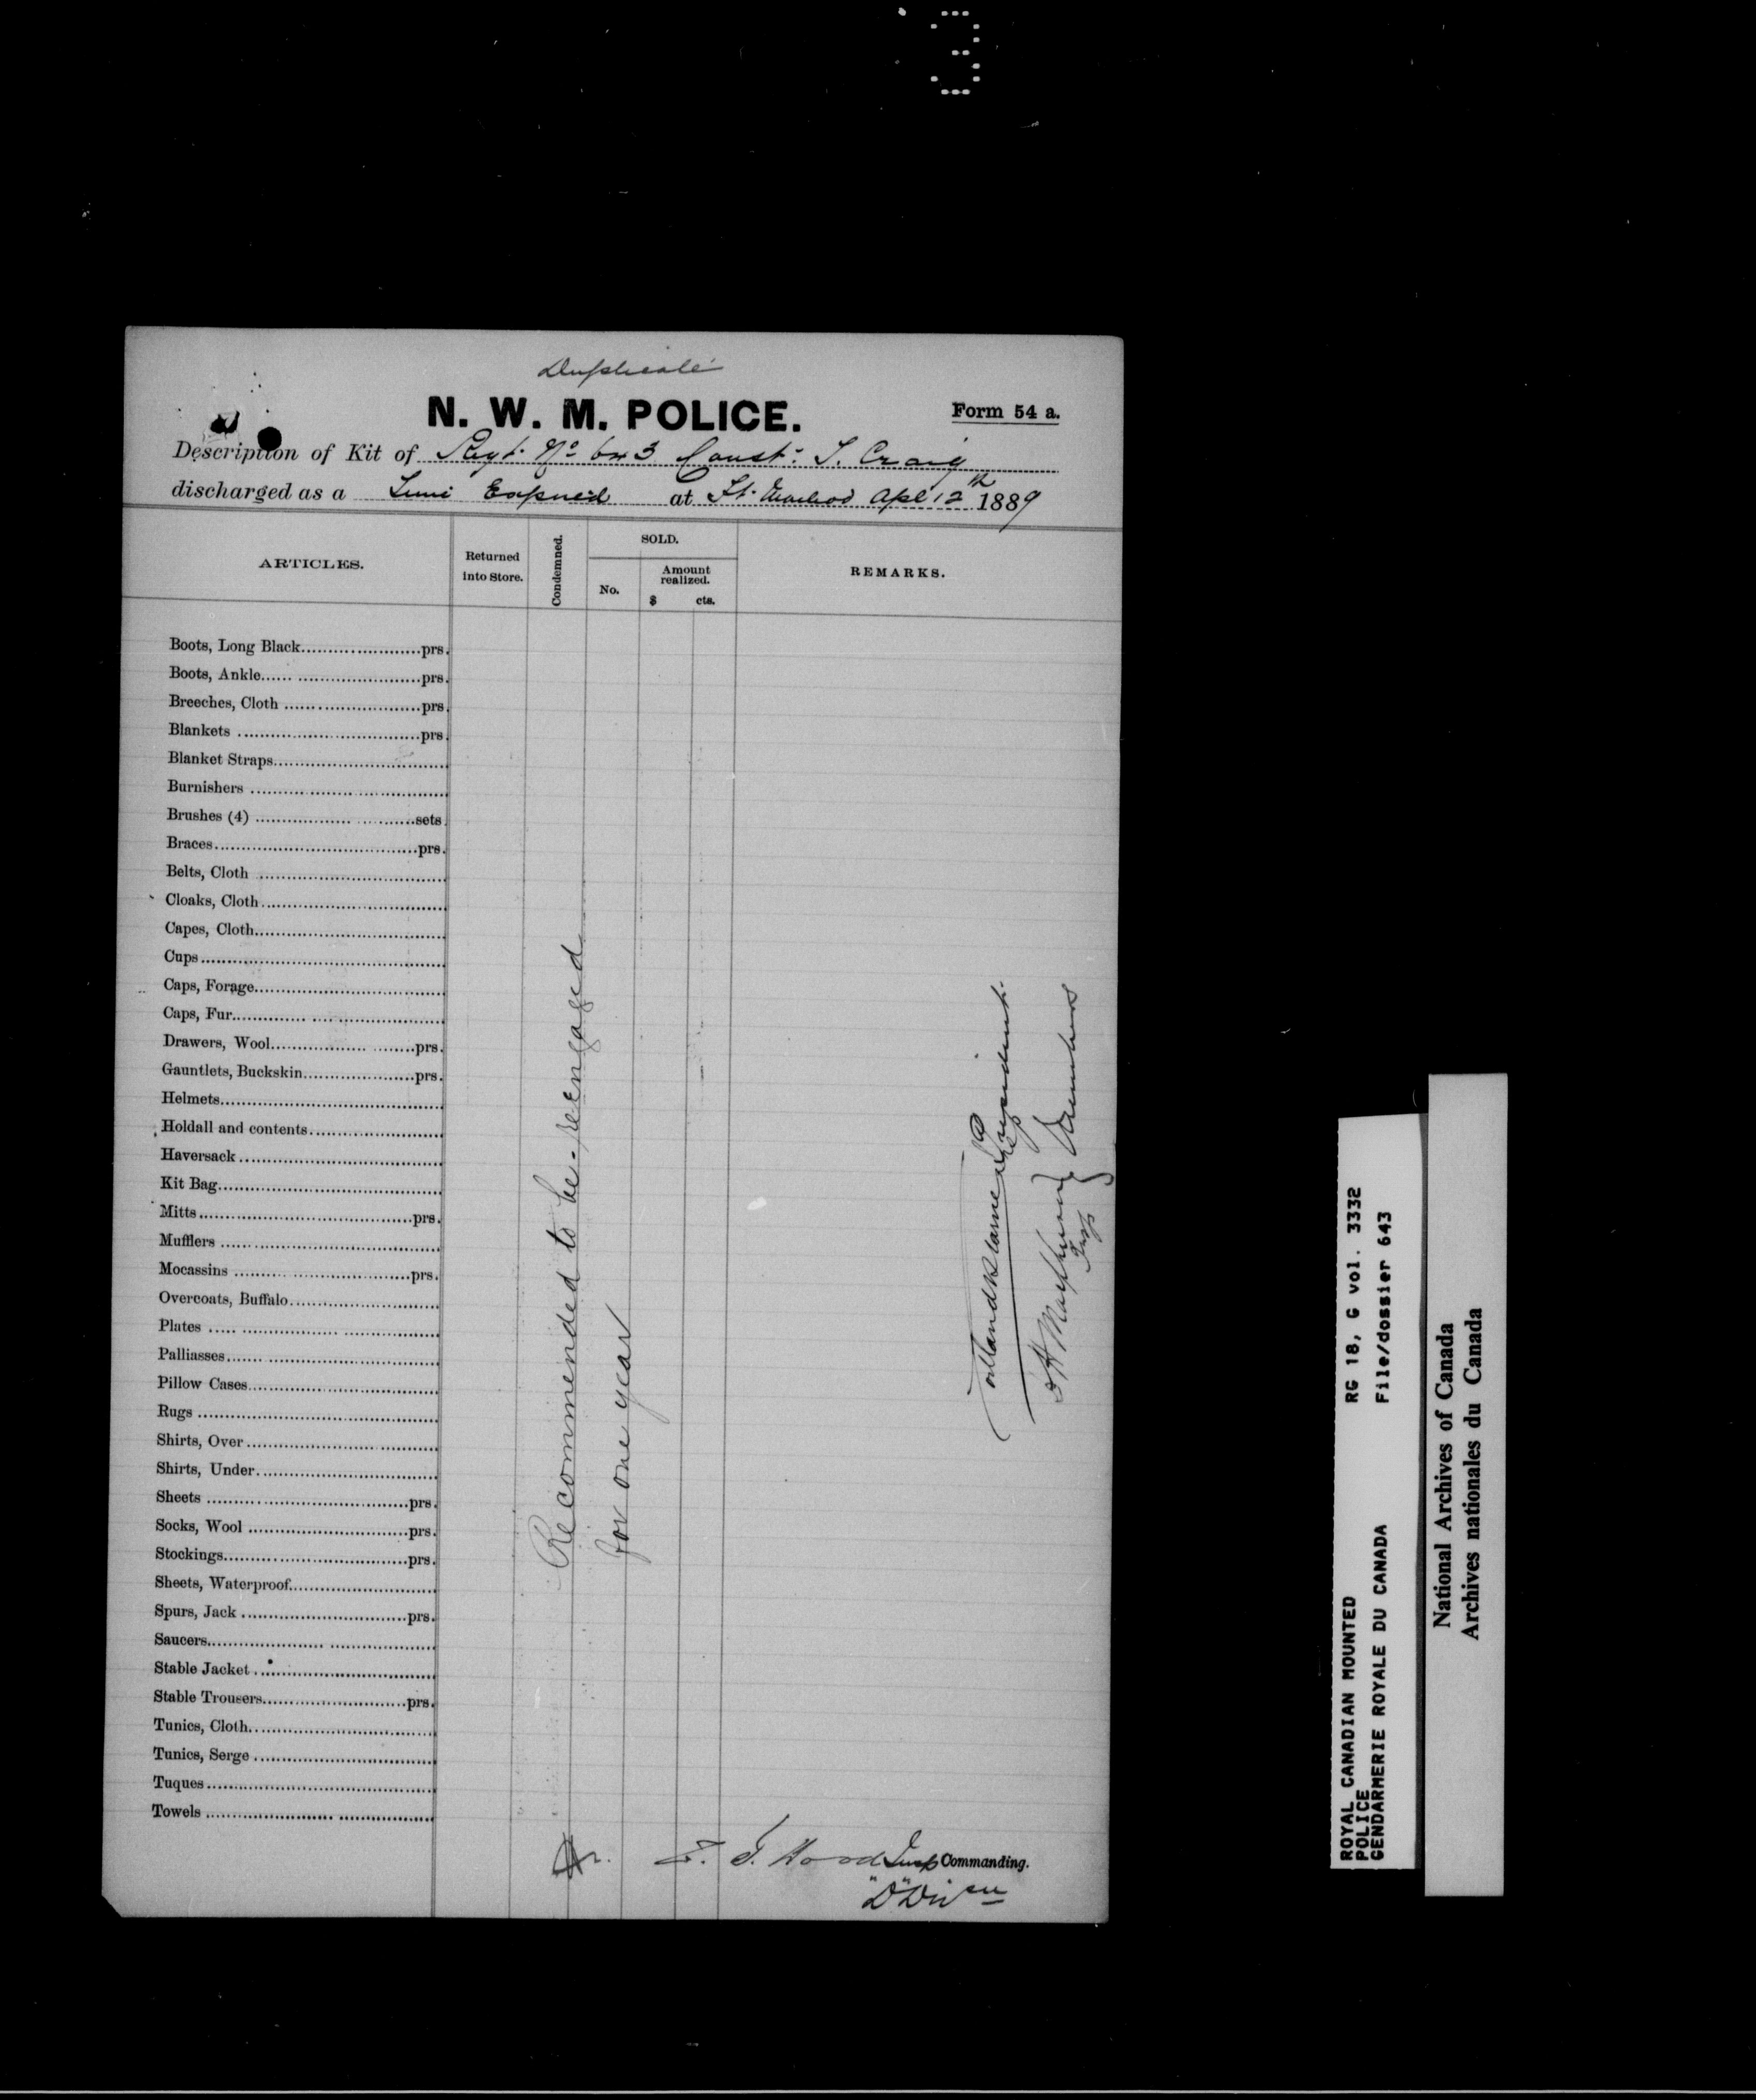 3
Duplicate
N. W. M. POLICE.
Form 54 a.
Description of Kit of Regt. No 643 Const: T. Craig
discharged as a Time Expired at Ft. Macleod Apl 12th 1889
ARTICLES.
Returned into Store.
Condemned.
SOLD.
No.
Amount realized.
$ cts.
REMARKS.
Boots, Long Black......................prs.
Boots, Ankle...... .......................prs.
Breeches, Cloth .........................prs.
Blankets ..................................prs.
Blanket Straps................................
Burnishers .....................................
Brushes (4) .................. ...........sets
Braces......................................prs.
Belts, Cloth ...................................
Cloaks, Cloth...................................
Capes, Cloth....................................
Cups..............................................
Caps, Forage....................................
Caps, Fur.............. .... ....................
Drawers, Wool.................. ........prs.
Gauntlets, Buckskin.....................prs.
Helmets..........................................
Holdall and contents.........................
Haversack ......................................
Kit Bag..........................................
Mitts........................................prs.
Mufflers .........................................
Mocassins .................................prs.
Overcoats, Buffalo............................
Plates ..... .................. ..................
Palliasses........................................
Pillow Cases....................................
Rugs .............................................
Shirts, Over....................................
Shirts, Under..................................
Sheets ......................................prs.
Socks, Wool ..............................prs.
Stockings..................................prs.
Sheets, Waterproof...........................
Spurs, Jack ...............................prs.
Saucers...................... ...................
Stable Jacket ..................................
Stable Trousers...........................prs.
Tunics, Cloth...................................
Tunics, Serge ..................................
Tuques...........................................
Towels ........................ .................
Recommended to be re-engaged
for one year
President
Insp
Members
Z. T. Wood Insp Commanding.
"D" Divn
ROYAL CANADIAN MOUNTED POLICE
RG 18, G vol. 3332
GENDARMERIE ROYALE DU CANADA
File/dossier 643
National Archives of Canada
Archives nationales du Canada